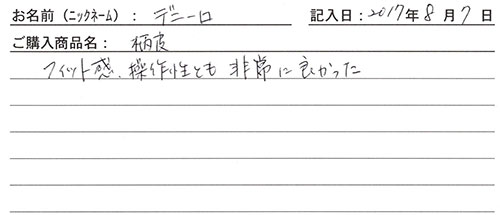 お名前（ニックネーム）： デニーロ 記入日：2017年8月7日
ご購入商品名： 柄皮
フィット感、操作性とも 非常に良かった